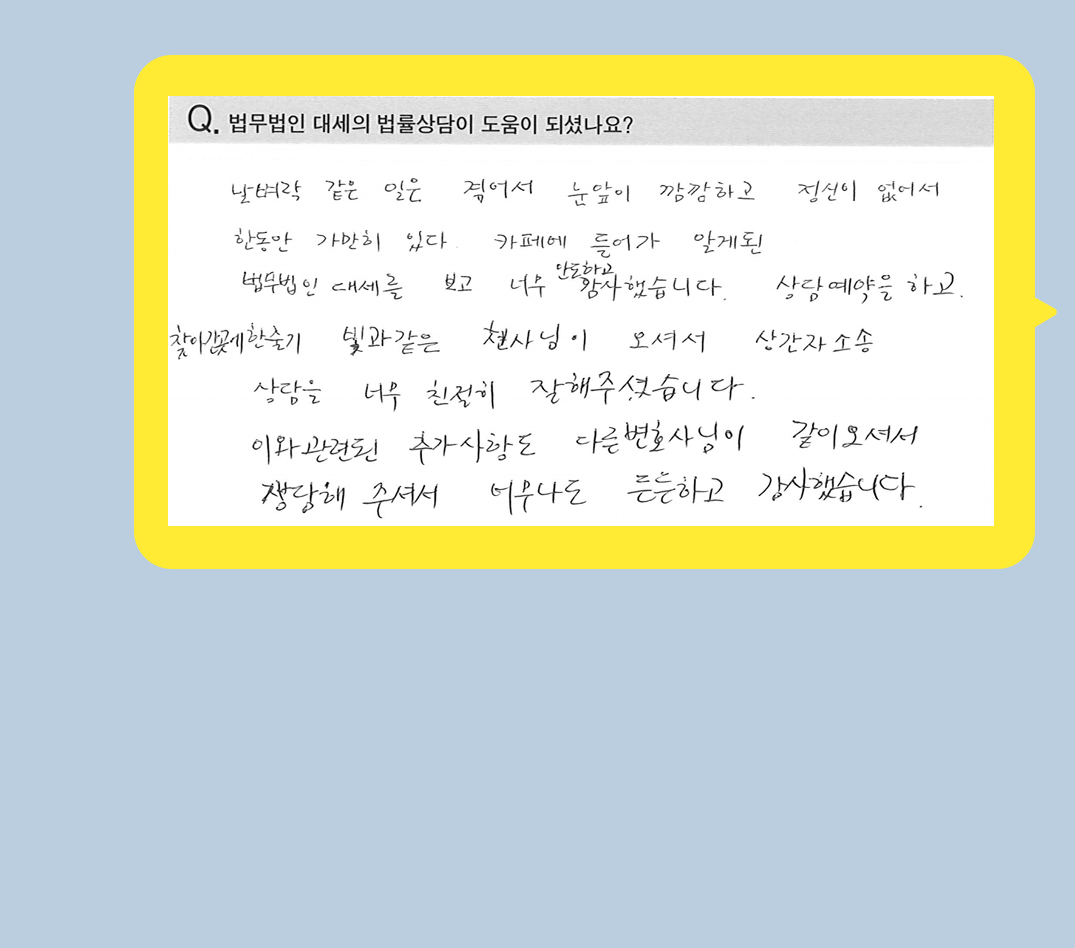 Q. 법무법인 대세의 법률상담이 도움이 되셨나요?
날벼락 같은 일은 겪어서 눈앞이 깜깜하고 정신이 없어서
한동안 가만히 있다. 카페에 들어가 알게된
안도하고
법무법인 대세를 보고 너무 감사했습니다. 상담예약을 하고.
찾아간곳에 한줄기 빛과같은 천사님이 오셔서 상간자소송
상담을 너무 친절히 잘해주셨습니다.
이와관련된 추가사항도 다른변호사님이 같이오셔서
상담해 주셔서 너무나도 든든하고 감사했습니다.